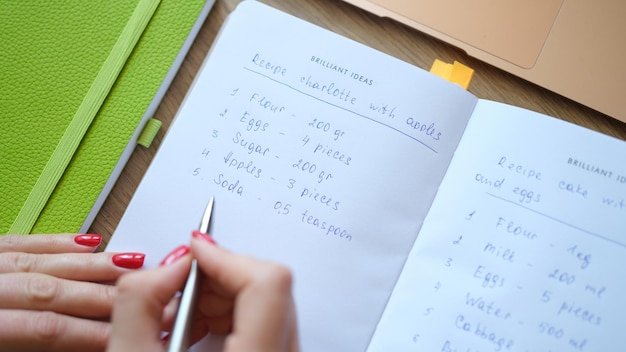 BRILLIANT IDEAS
Recipe charlotte with apples
1 Flour - 200 gr
2 Eggs - 4 pieces
3 Sugar - 200 gr
4 Apples - 3 pieces
5 Soda - 0,5 teaspoon
BRILLIANT IDE
Recipe cake wit
and eggs
1 Flour - 1kg
2 Milk - 200 ml
3 Eggs - 5 pieces
4 Water - 500 ml
5 Cabbage